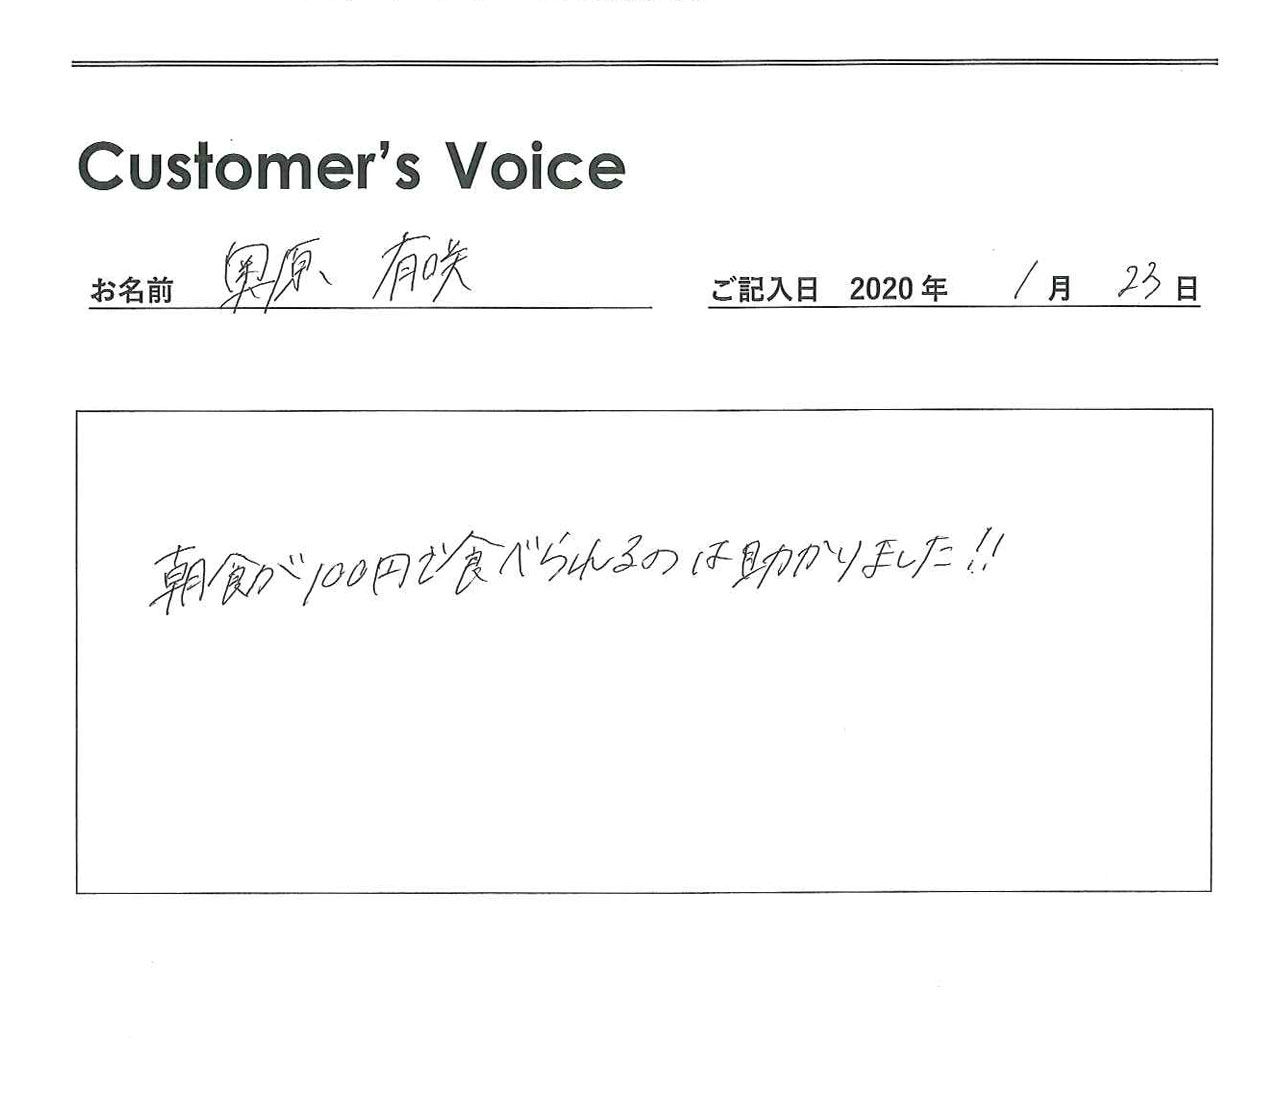 Customer's Voice
お名前 奥原 有咲 ご記入日 2020年 1月 23日
朝食が100円で食べられるのは助かりました!!